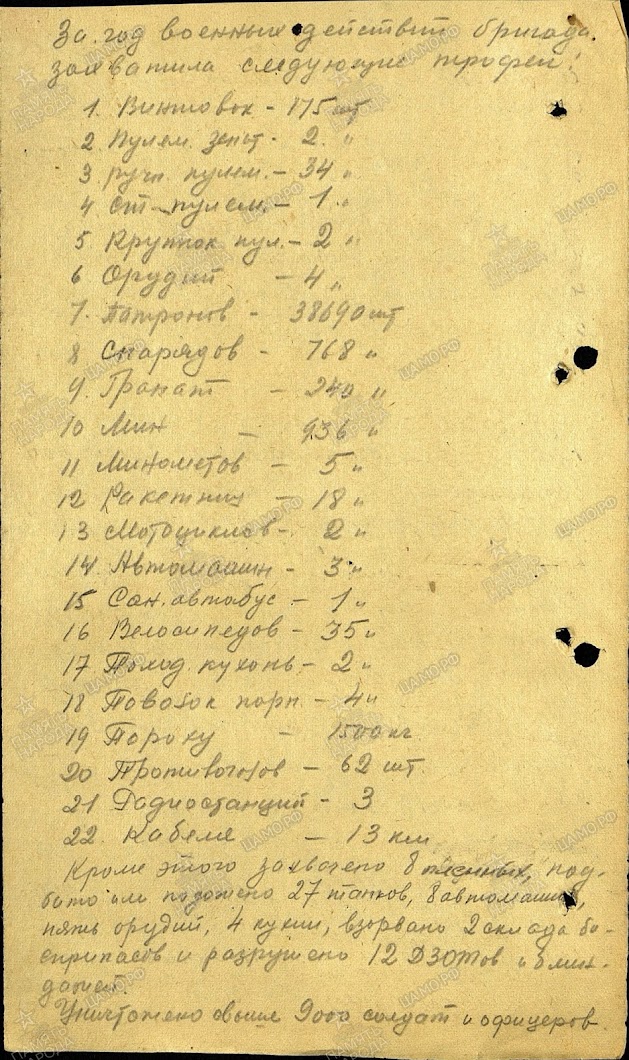 За год военных действий бригада
захватила следующие трофеи:
1. Винтовок - 175 шт
2 Пулем. зенит - 2. "
3 ручн. пулем. - 34 "
4 ст. пулем. - 1. "
5 Крупнок. пул. - 2 "
6 Орудий - 4 "
7. Патронов - 38690 шт
8 Снарядов - 768 "
9. Гранат - 240 "
10 Мин - 936 "
11 Минометов - 5 "
12 Ракетниц - 18 "
13 Мотоциклов - 2 "
14 Автомашин - 3 "
15 Сан. автобус - 1 "
16 Велосипедов - 35 "
17 Поход. кухонь - 2 "
18 Повозок парн. - 4 "
19 Пороху - 1500 кг
20 Противогазов - 62 шт
21 Радиостанций - 3
22. Кабеля - 13 км
Кроме этого захвачено 8 пленных, под-
бито или подожено 27 танков, 8 автомашин,
пять орудий, 4 кухни, взорвано 2 склада бо-
еприпасов и разрушено 12 ДЗОТов и блин-
дажей.
Уничтожено свыше 9000 солдат и офицеров.